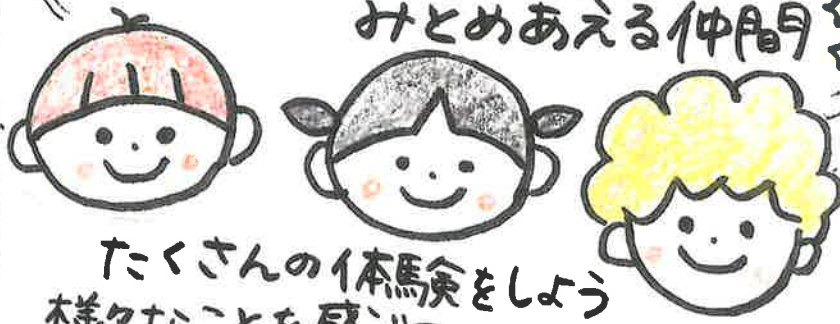 みとめあえる仲間
たくさんの体験をしよう
様々なことを感じ